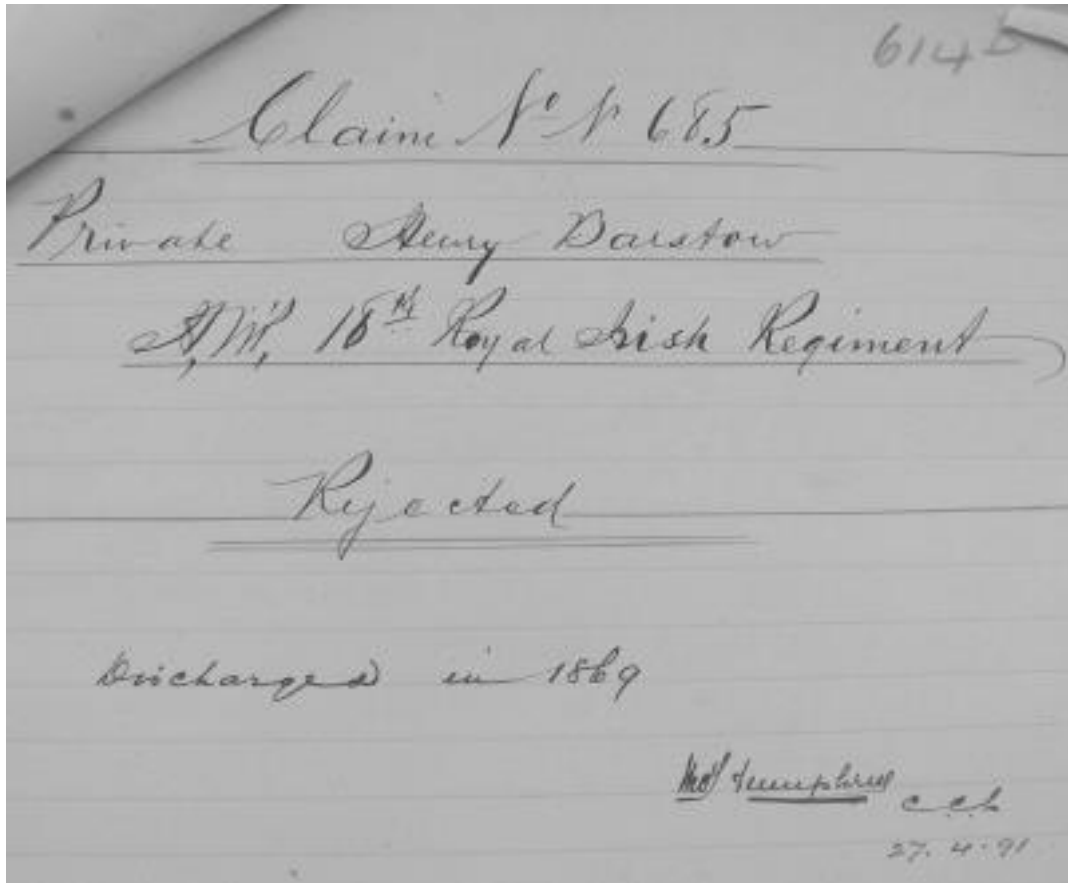 614
Claim No N 685
Private Henry Barstow
18th Royal Irish Regiment
Rejected
Discharged in 1869
Humphries
27. 4. 91